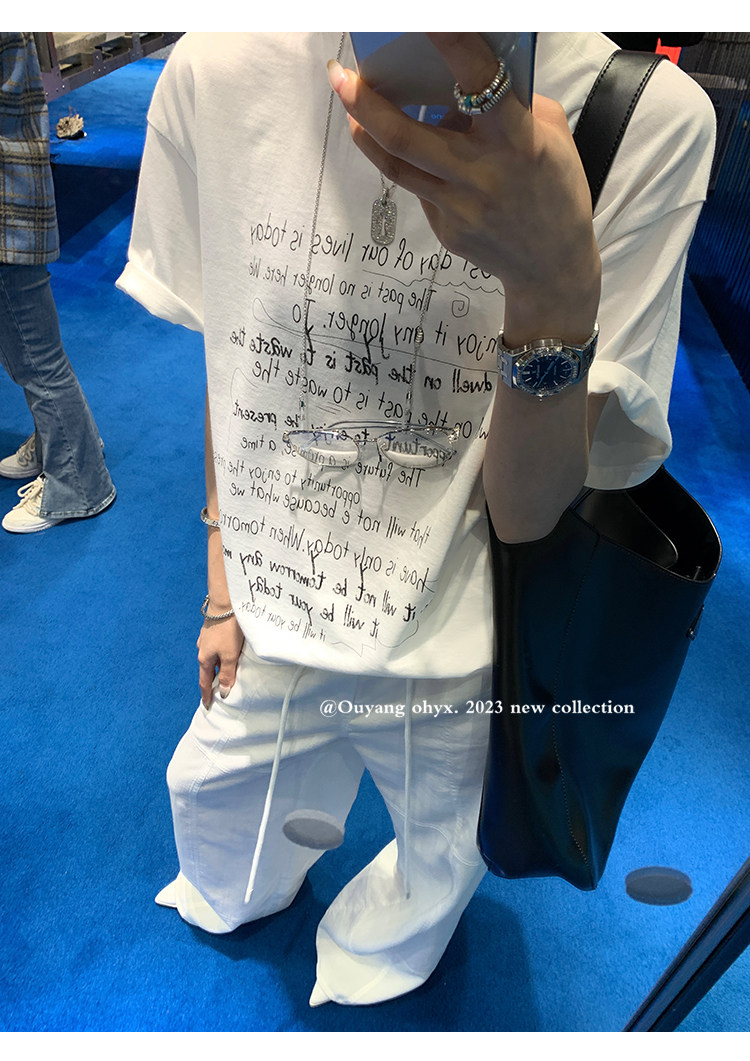 ost day of our lives is today
The past is no longer here. We
njoy it any longer. To
dwell on the past is to waste the
w on the past is to waste the
the present
opportunit to enjoy
The future is a promise, a time
opportunity to enjoy the pres
that will not e because what we
have is only today. When tomorr
it will not be tomorrow any m
it will be your today
it will be your today.
@Ouyang ohyx. 2023 new collection